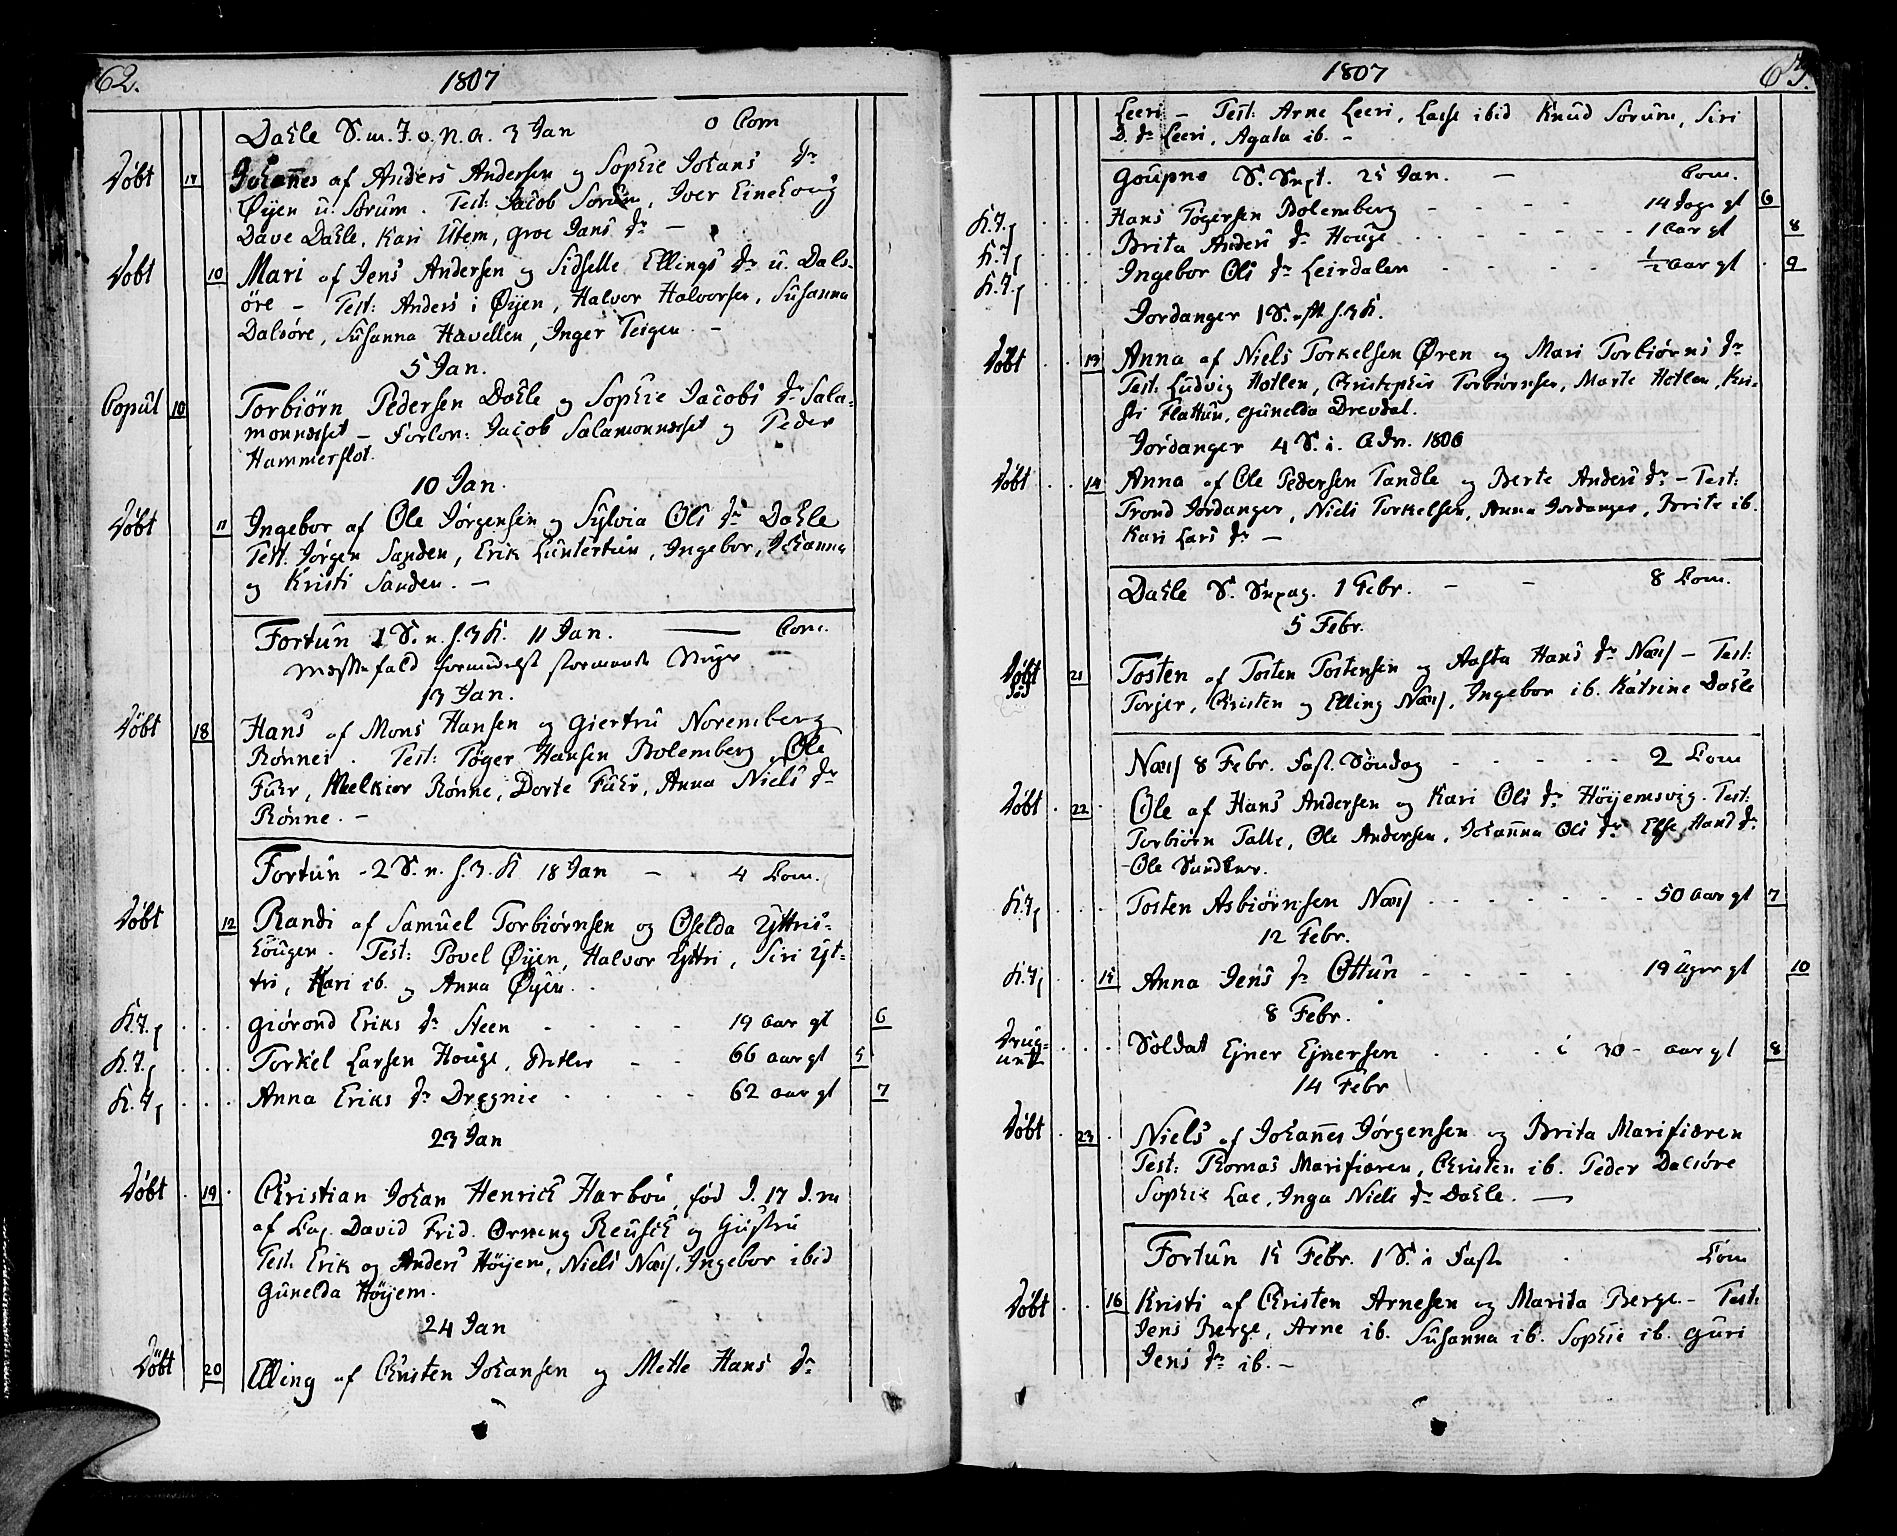 62.
1807
Dahle S. m. J. o. N. A. 3 Jan 0 Com
Døbt 17 Johannes af Anders Andersen og Sophie Johans Dr
Øyen u. Sorum. Test: Jacob Sorum, Iver Einehoug
Dave Dahle, Kari Utem, Groe Jans Dr —
Døbt 10 Mari af Jens Andersen og Sidselle Ellings Dr u. Dals-
øre — Test: Anders i Øyen, Halvor Halvorsen, Susanna
Dalsøre, Susanna Havellen, Inger Teigen. —
5 Jan.
Copul 10 Torbiørn Pedersen Dahle og Sophie Jacobs Dr Sala-
monnæset — Forlov: Jacob Salamonnæset og Peder
Hammerslot.
10 Jan.
Døbt 11 Ingebor af Ole Jørgensen og Sylvia Ols Dr Dahle
Test. Jørgen Sanden, Erik Luntertun, Ingebor, Johanna
og Kristi Sanden. —
Fortun 1 S. n. h. 3 K. 11 Jan. — Com.
Messefald formedelst stormende Veyr
13 Jan.
Døbt 18 Hans af Mons Hansen og Giertru Noremberg
Rønnei. Test: Tøger Hansen Bolemberg, Ole
Fuhr, Melkior Rønne, Dorte Fuhr, Anna Niels Dr
Rønne. —
Fortun - 2 S. n. h. 3. K 18 Jan — 4 Com.
Døbt 12 Randi af Samuel Torbiørnsen og Oselda Yttris-
hougen. Test: Povel Øyen, Halvor Yttri, Siri Yt-
tri, Kari ib. og Anna Øyen.
K. J. Giørond Eriks Dr Steen 19 Aar gl 6
K. J. Torkel Larsen Houge, 66 Aar gl 5
K. J. Anna Eriks Dr Dregnie 62 Aar gl 7
23 Jan
Døbt 19 Christian Johan Henrich Harbou, fød d. 17 d. m
af Cap. David Frid. Orning Reusch og Gustru
Test: Erik og Anders Høyem, Niels Næss, Ingebor ibid
Gunelda Høyem.
24 Jan
Døbt 20 Elling af Christen Johansen og Mette Hans Dr
1807
63.
Leeri — Test: Arne Leeri, Lasse ibid Knud Sorum, Siri
D. Dr Leeri, Agata ib. —
Goupne S. Sept. 25 Jan. — Com.
K. J. Hans Tøgersen Bolemberg 14 Dage gl 6
K. J. Brita Anders Dr Houge 1 Aar gl 8
K. J. Ingebor Ols Dr Leirdalen ½ Aar gl 9
Jordanger 1 S. eft h. 3 K.
Døbt 13 Anna af Niels Torkelsen Øren og Mari Torbiørns Dr
Test: Ludvig Hotlen, Christopher Torbiørnsen, Marte Hotlen, Kri-
sti Flattun, Gunelda Drevdal.
Jordanger 4 S. i. Adv. 1806
Døbt 14 Anna af Ole Pedersen Tandle og Berte Anders Dr — Test:
Trond Jordanger, Niels Torkelsen, Anna Jordanger, Brite ib.
Kari Lars Dr —
Dahle S. Sexag. 1 Febr. — — 8 Com.
5 Febr.
Døbt 21 Tosten af Tosten Tostensen og Aasta Hans Dr Næss — Test:
Torjer, Christen og Elling Næss, Ingebor ib. Katrine Dahle
Næss 8 Febr. Fast. Søndag 2 Com
Døbt 22 Ole af Hans Andersen og Kari Ols Dr Høyemsvig. Test:
Torbiørn Talle, Ole Andersen, Johanna Ols Dr Else Hans Dr
Ole Sundhver.
K. J. Tosten Asbiørnsen Næss 50 Aar gl 7
12 Febr.
K. J. 15 Anna Jens Dr Ottun 19 Uger gl 10
8 Febr.
Drug-
net Soldat Ejner Ejnersen i 30 - Aar gl 8
14 Febr
Døbt 23 Niels af Johannes Jørgensen og Brita Marifiæren
Test: Thomas Marifiæren, Christen ib. Peder Dalsøre
Sophie Lae, Inga Niels Dr Dahle. —
Fortun 15 Febr. 1 S. i Fast. Com
Døbt 16 Kristi af Christen Arnesen og Marita Berge — Test:
Jens Berge, Arne ib. Susanna ib. Sophie ib. Guri
Jens Dr ib. —